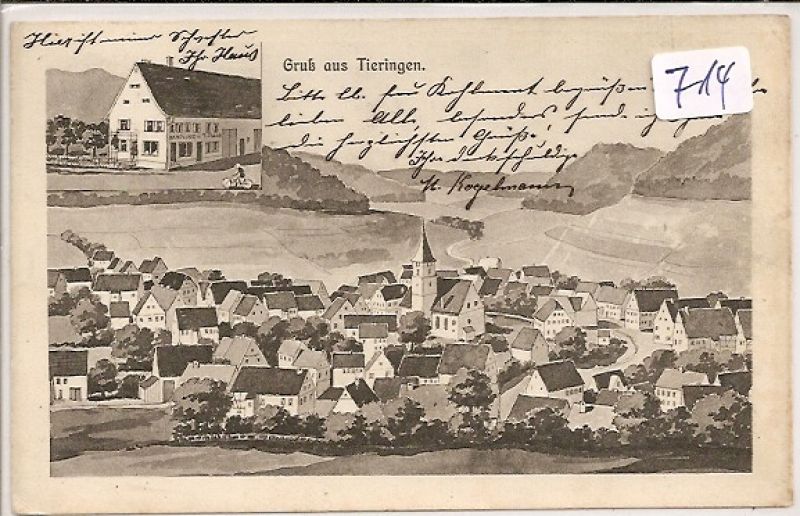 Hier ist meiner Schwester
Ihr Haus
Gruß aus Tieringen.
714
Bitte frau begrüßen
lieben Alle, besonders sende ich
die herzlichsten Grüße!
Ihre dankschuldige
Kogelmann
HANDLUNG